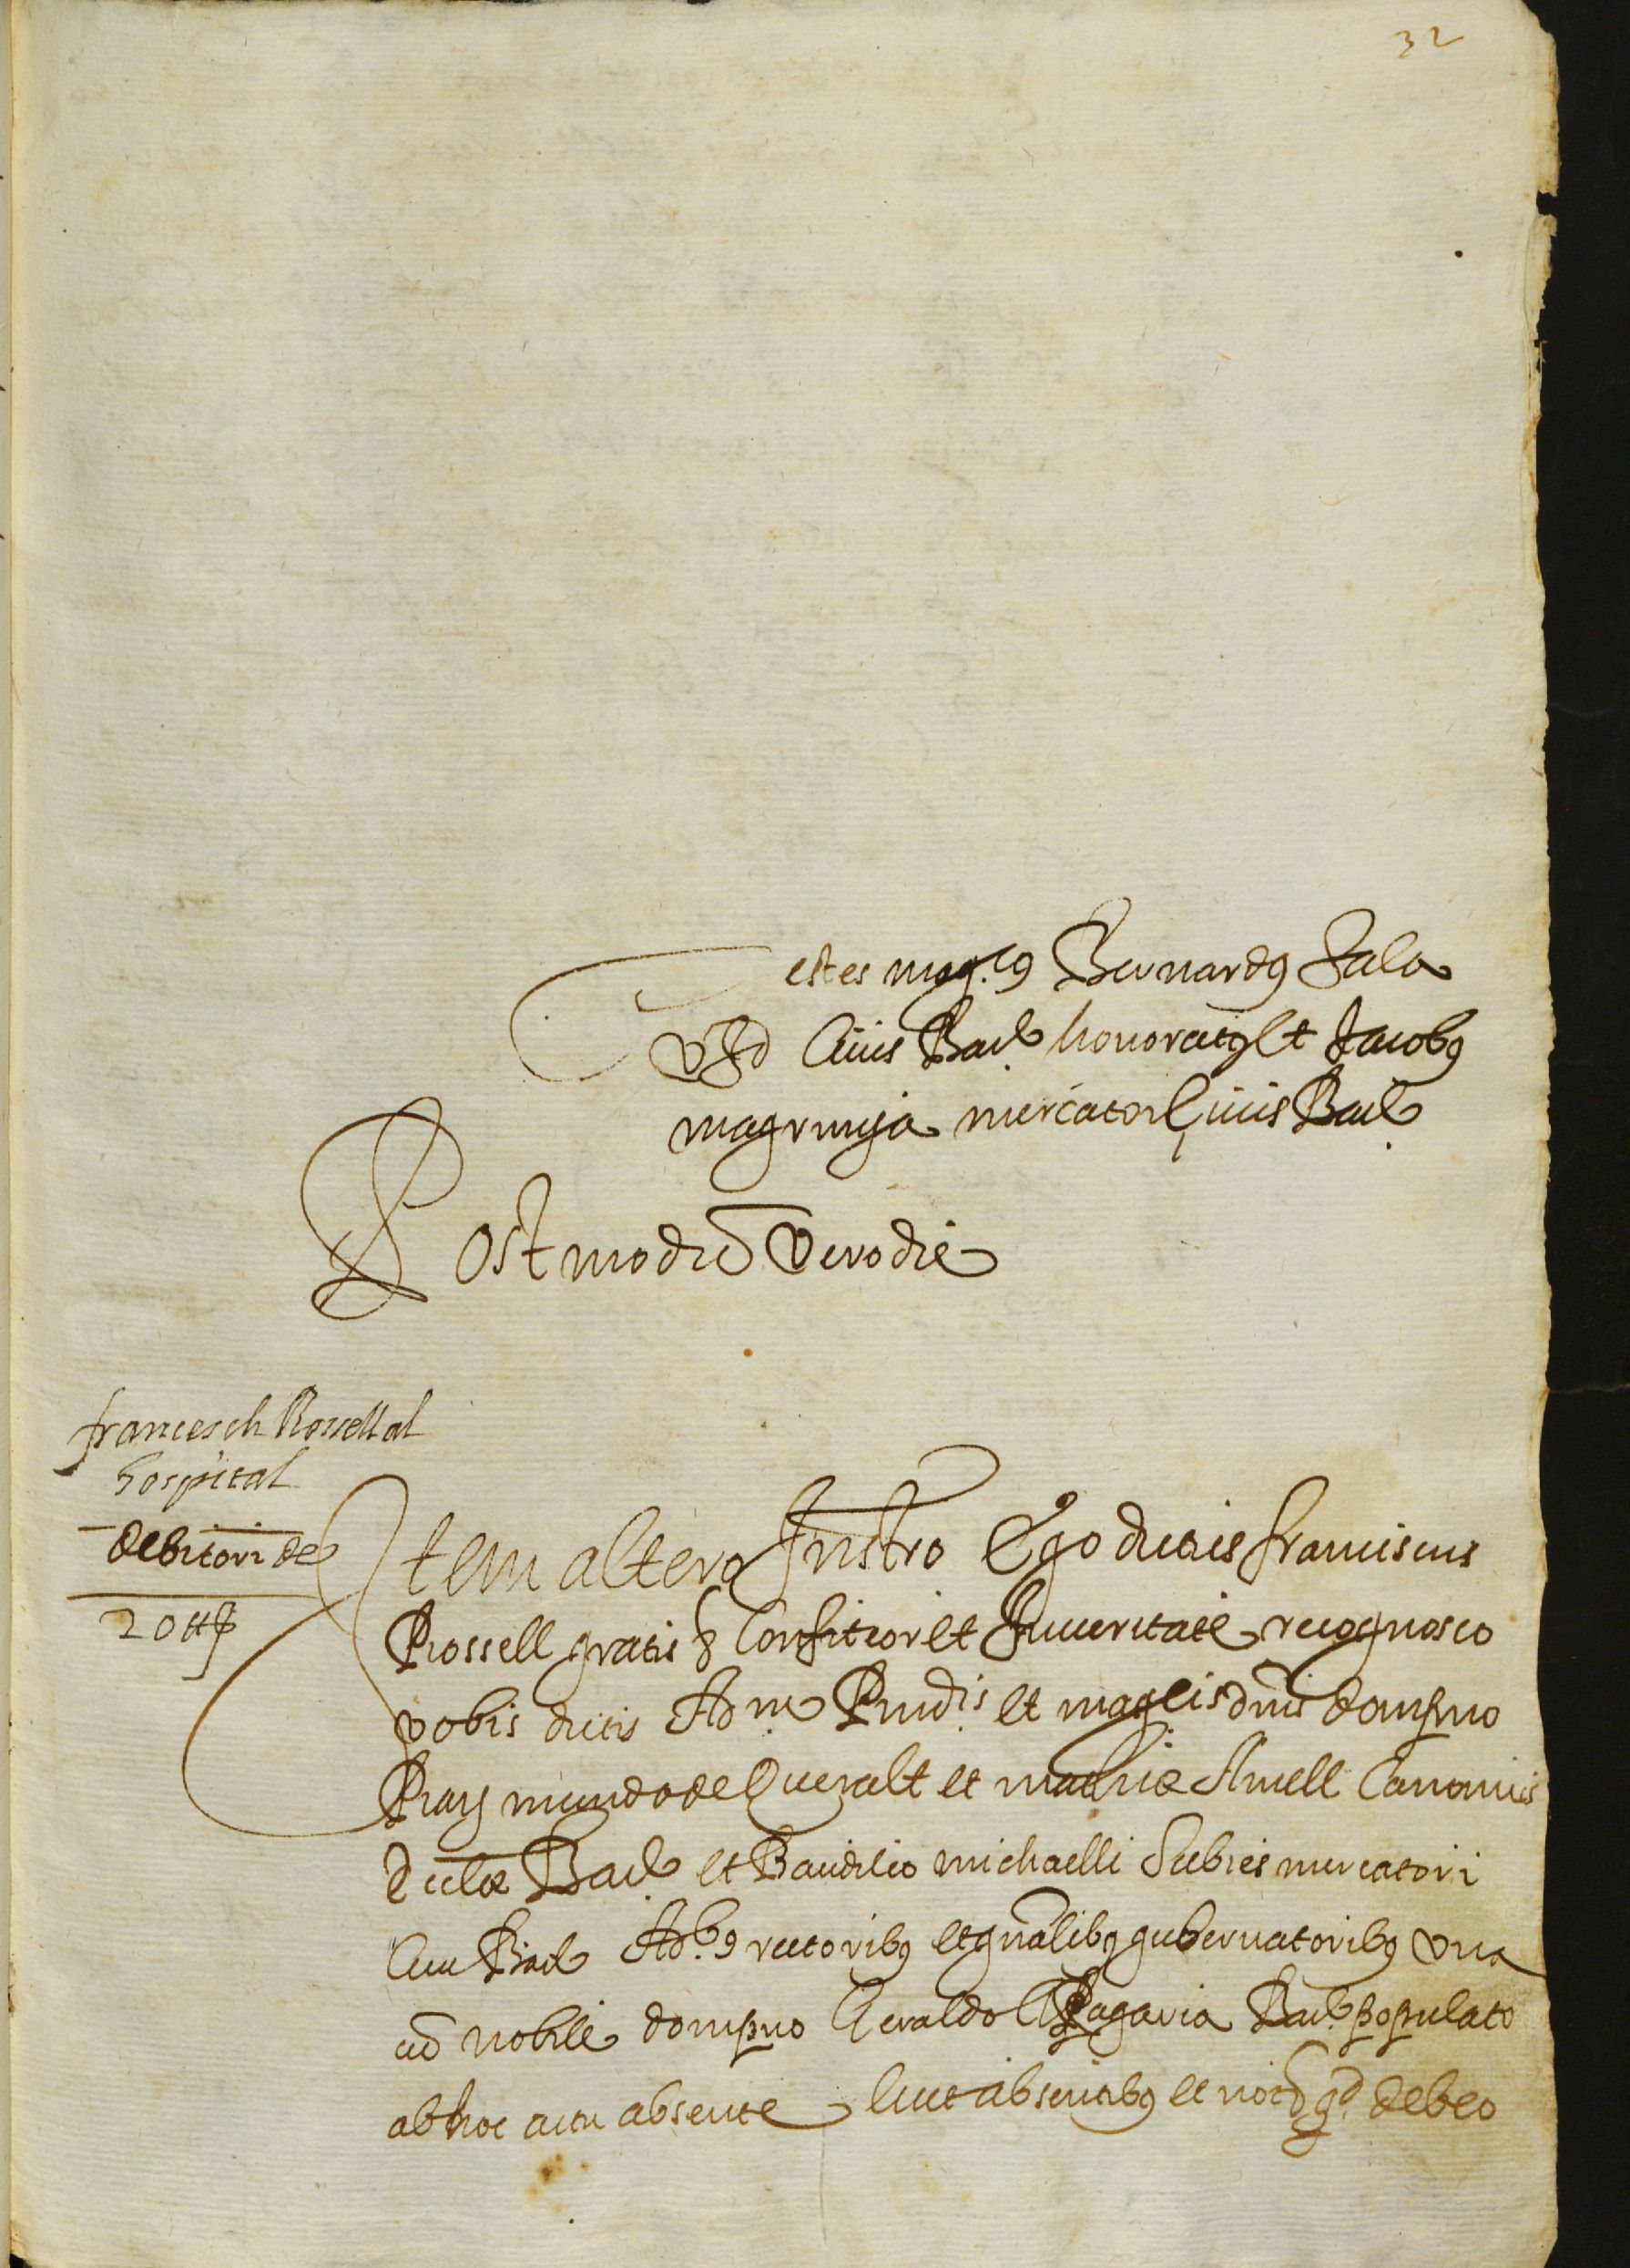 32
Testes mag.cus Bernardus Sala
VJD Civis Bar.e honoratus et Jacobus
magrinya mercator Civis Bar.e
Postmodũ vero die
francesch Rossell al
hospital
debitori de
20 ll
Item altero Instro Ego dictus franciscus
Rossell gratis & Confiteor et In veritate recognosco
vobis dictis Adm Rndis et magcis dnis dompno
Raymundo de Queralt et mathie Amell Canonicis
Ecclæ Bar.e et Baudilio michaelli Subies mercatori
Civi Bar.e Ad.bus rectoribus et gnalibus gubernatoribus una
cũ nobile dompno Geraldo A Pagaria Bar.e populato
ab hoc actu absente, licet absentibus et not qd debeo